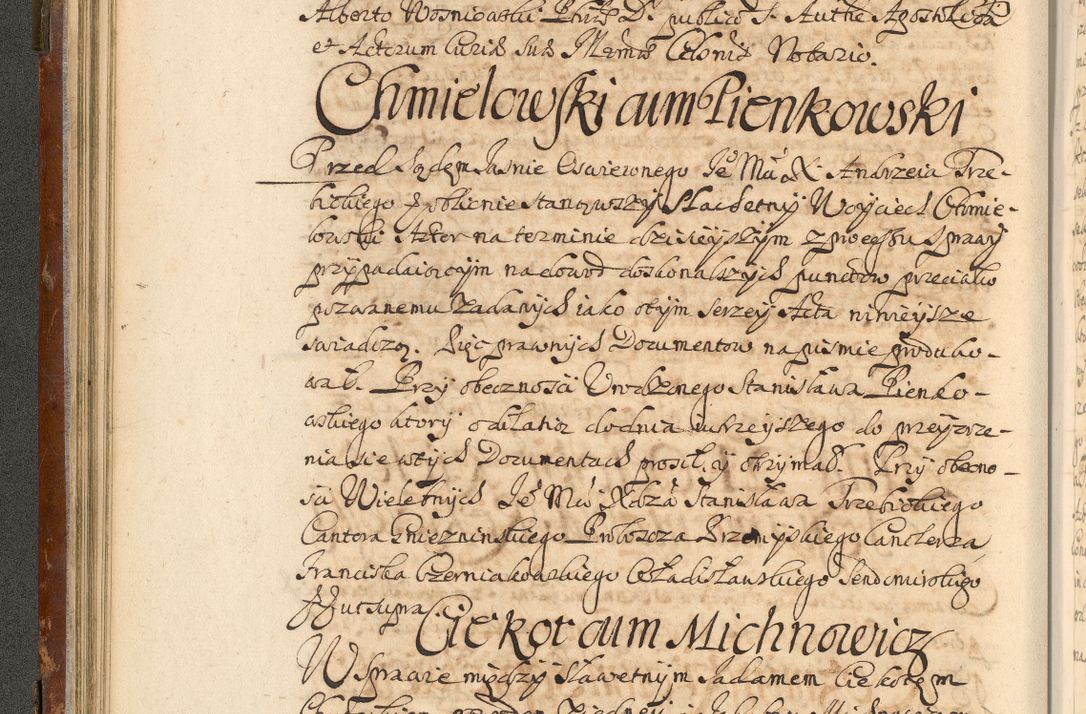 Alberto Wosniowski Phiae Dr publico S. Authe Apostolica
et Actorum Curiæ suæ Illrmæ Celsnis Notario.
Chmielowski cum Pienkowski
Przed Sądem Jasnie Oswieconego Je° Mci X. Andrzeia Trze-
bickiego oblicznie stanowszy Slachetny Woyciech Chmie-
lowski Aktor na terminie dzisieyszym z processu sprawy
przypadaiącym na dowod doskonalszych punctow przeciwko
pozwanemu zadanych iako o tym szerzey Acta ninieysze
swiadczą. Pięc prawnych Documentow na pismie produko-
wał. Przy obecznosci Urodzonego Stanisława Pienko-
wskiego ktory odilatią do dnia iutrzeyszego do przeyrze-
nia sie w tych Documentach prosił, y otrzymał. Przy obecno-
sci Wielebnych Je° Mci Xdza Stanisława Trzebickiego
Cantora Gnieznienskiego Proboszcza Przemyskiego Canclerza
Franciska Czerniakowskiego Wladislawskiego Sendomirskiego
ut supra
Ciekot cum Michnowicz
W sprawie między sławetnym Jadamem Ciekotem